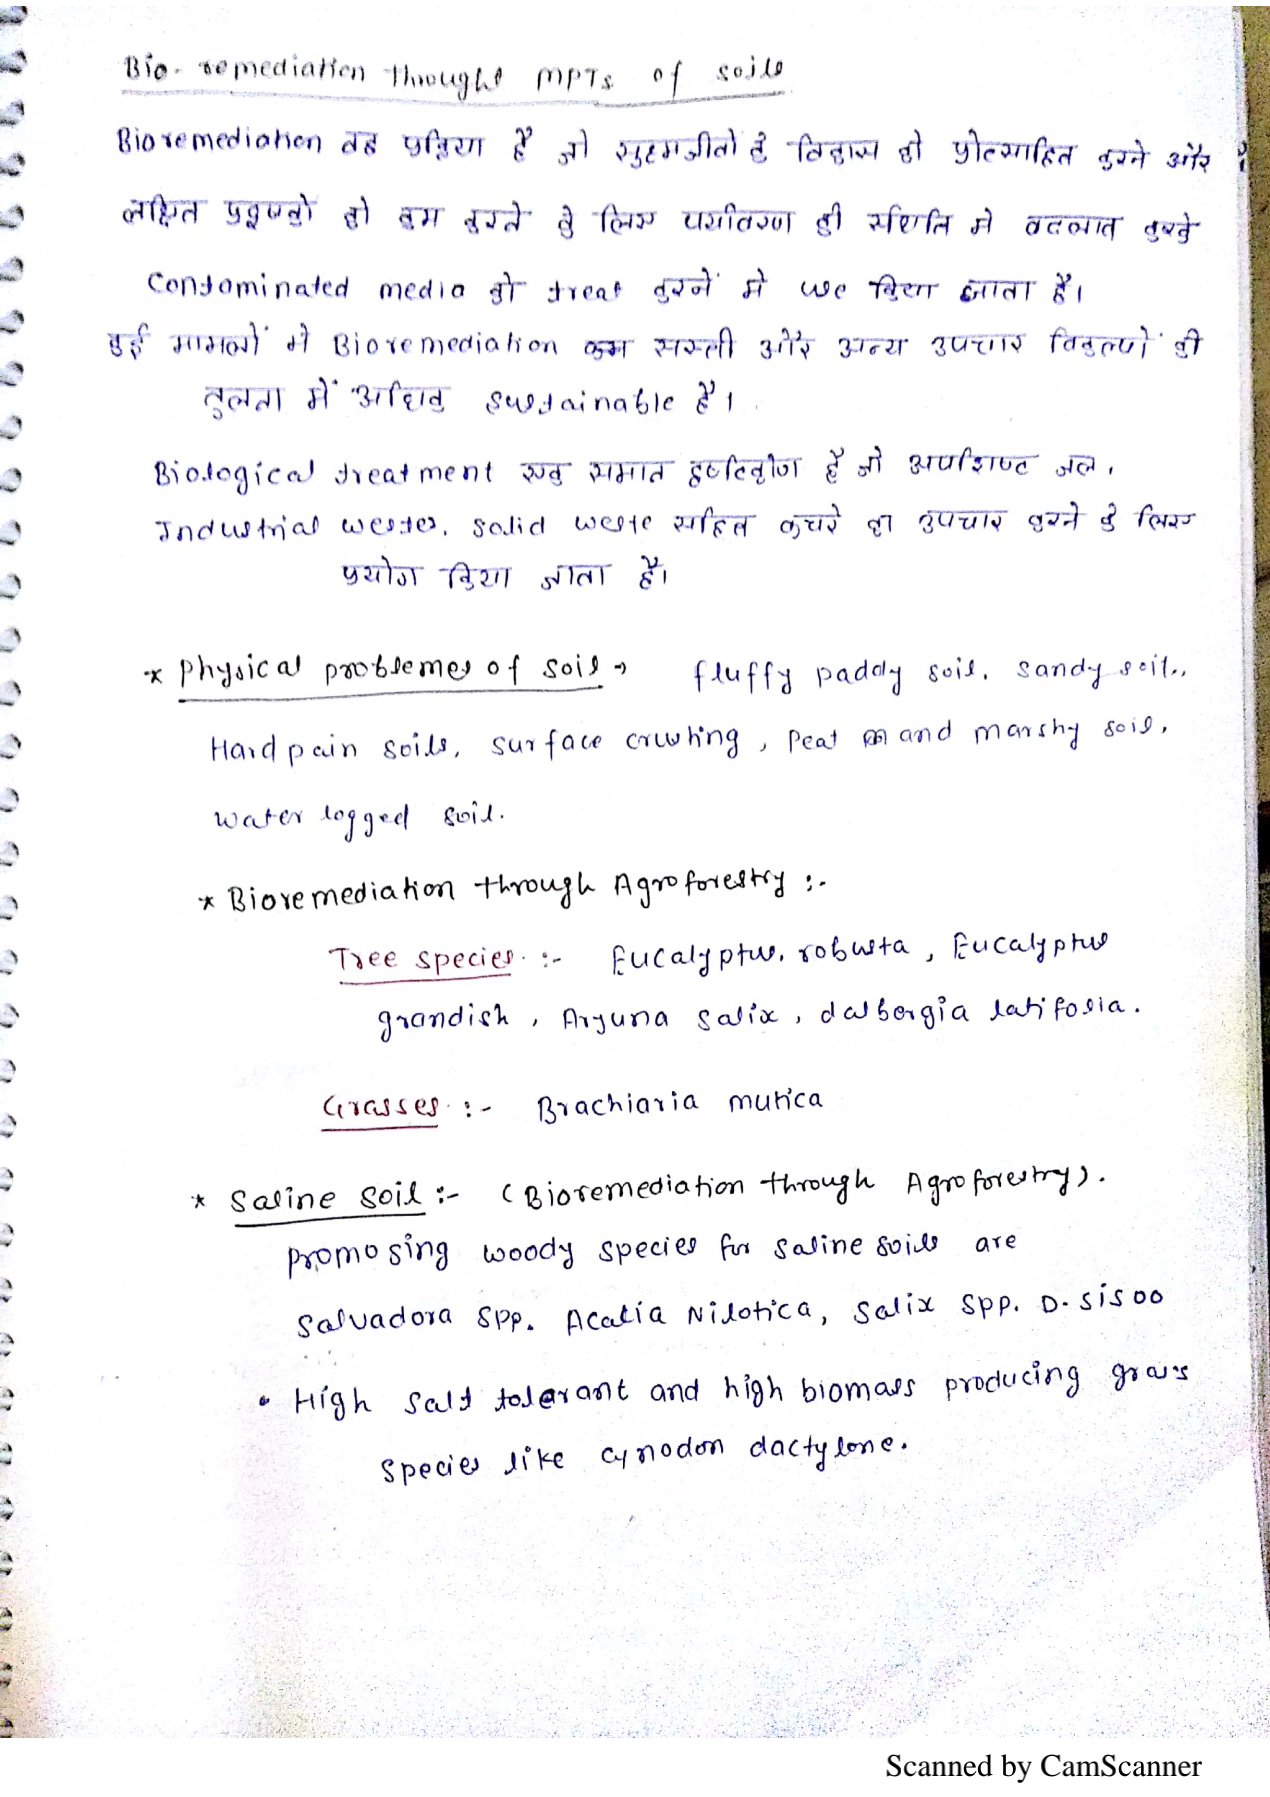 Bio-remediation throught MPTs of soils
Bioremediation वह प्रक्रिया है जो सुक्ष्मजीवो के विकास को प्रोत्साहित करने और
लक्षित प्रदूषको को कम करने के लिए पर्यावरण की स्थिति मे बदलाव करके
Contaminated media को treat करने मे use किया जाता है।
कई मामलों मे Bioremediation कम सस्ती और अन्य उपचार विकल्पों की
तुलना में अधिक sustainable है।
Biological treatment एक समान दृष्टिकोण है जो अपशिष्ट जल,
Industrial wastes, solid waste सहित कचरे का उपचार करने के लिए
प्रयोग किया जाता है।
* Physical problemes of soil → fluffy paddy soil, sandy soil,
Hard pain soils, surface crusting, Peat and marshy soil,
water logged soil.
* Bioremediation through Agroforestry :-
Tree species :- Eucalyptus robusta, Eucalyptus
grandish, Arjuna salix, dalbergia latifolia.
Grasses :- Brachiaria mutica
* Saline soil :- (Bioremediation through Agroforestry).
promosing woody species for saline soils are
Salvadora spp. Acacia Nilotica, Salix spp. D. sisoo
• High salt tolerant and high biomass producing grass
species like cynodon dactylone.
Scanned by CamScanner